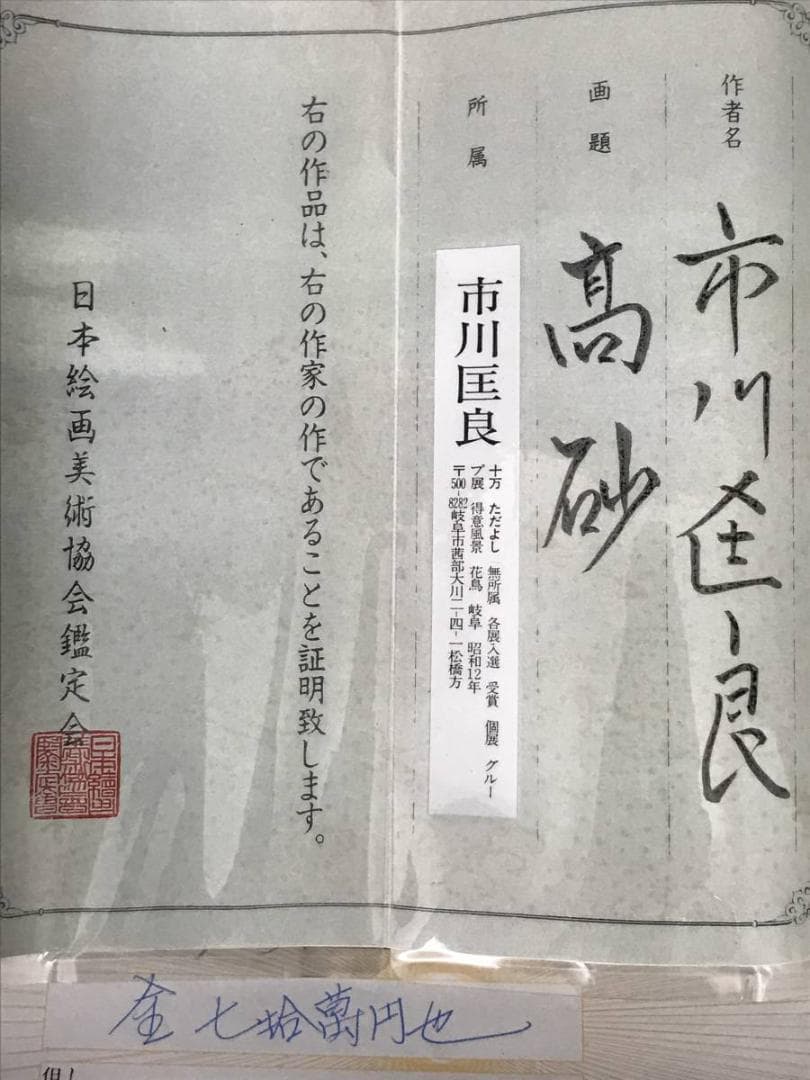 作者名 市川匡良
画題 高砂
所属
市川匡良
十万 ただよし 無所属 各展入選 受賞 個展 グルー
プ展 得意風景 花鳥 岐阜 昭和12年
〒500-8282岐阜市茜部大川二-四-一松橋方
右の作品は、右の作家の作であることを証明致します。
日本絵画美術協会鑑定会
金七拾萬円也
但し